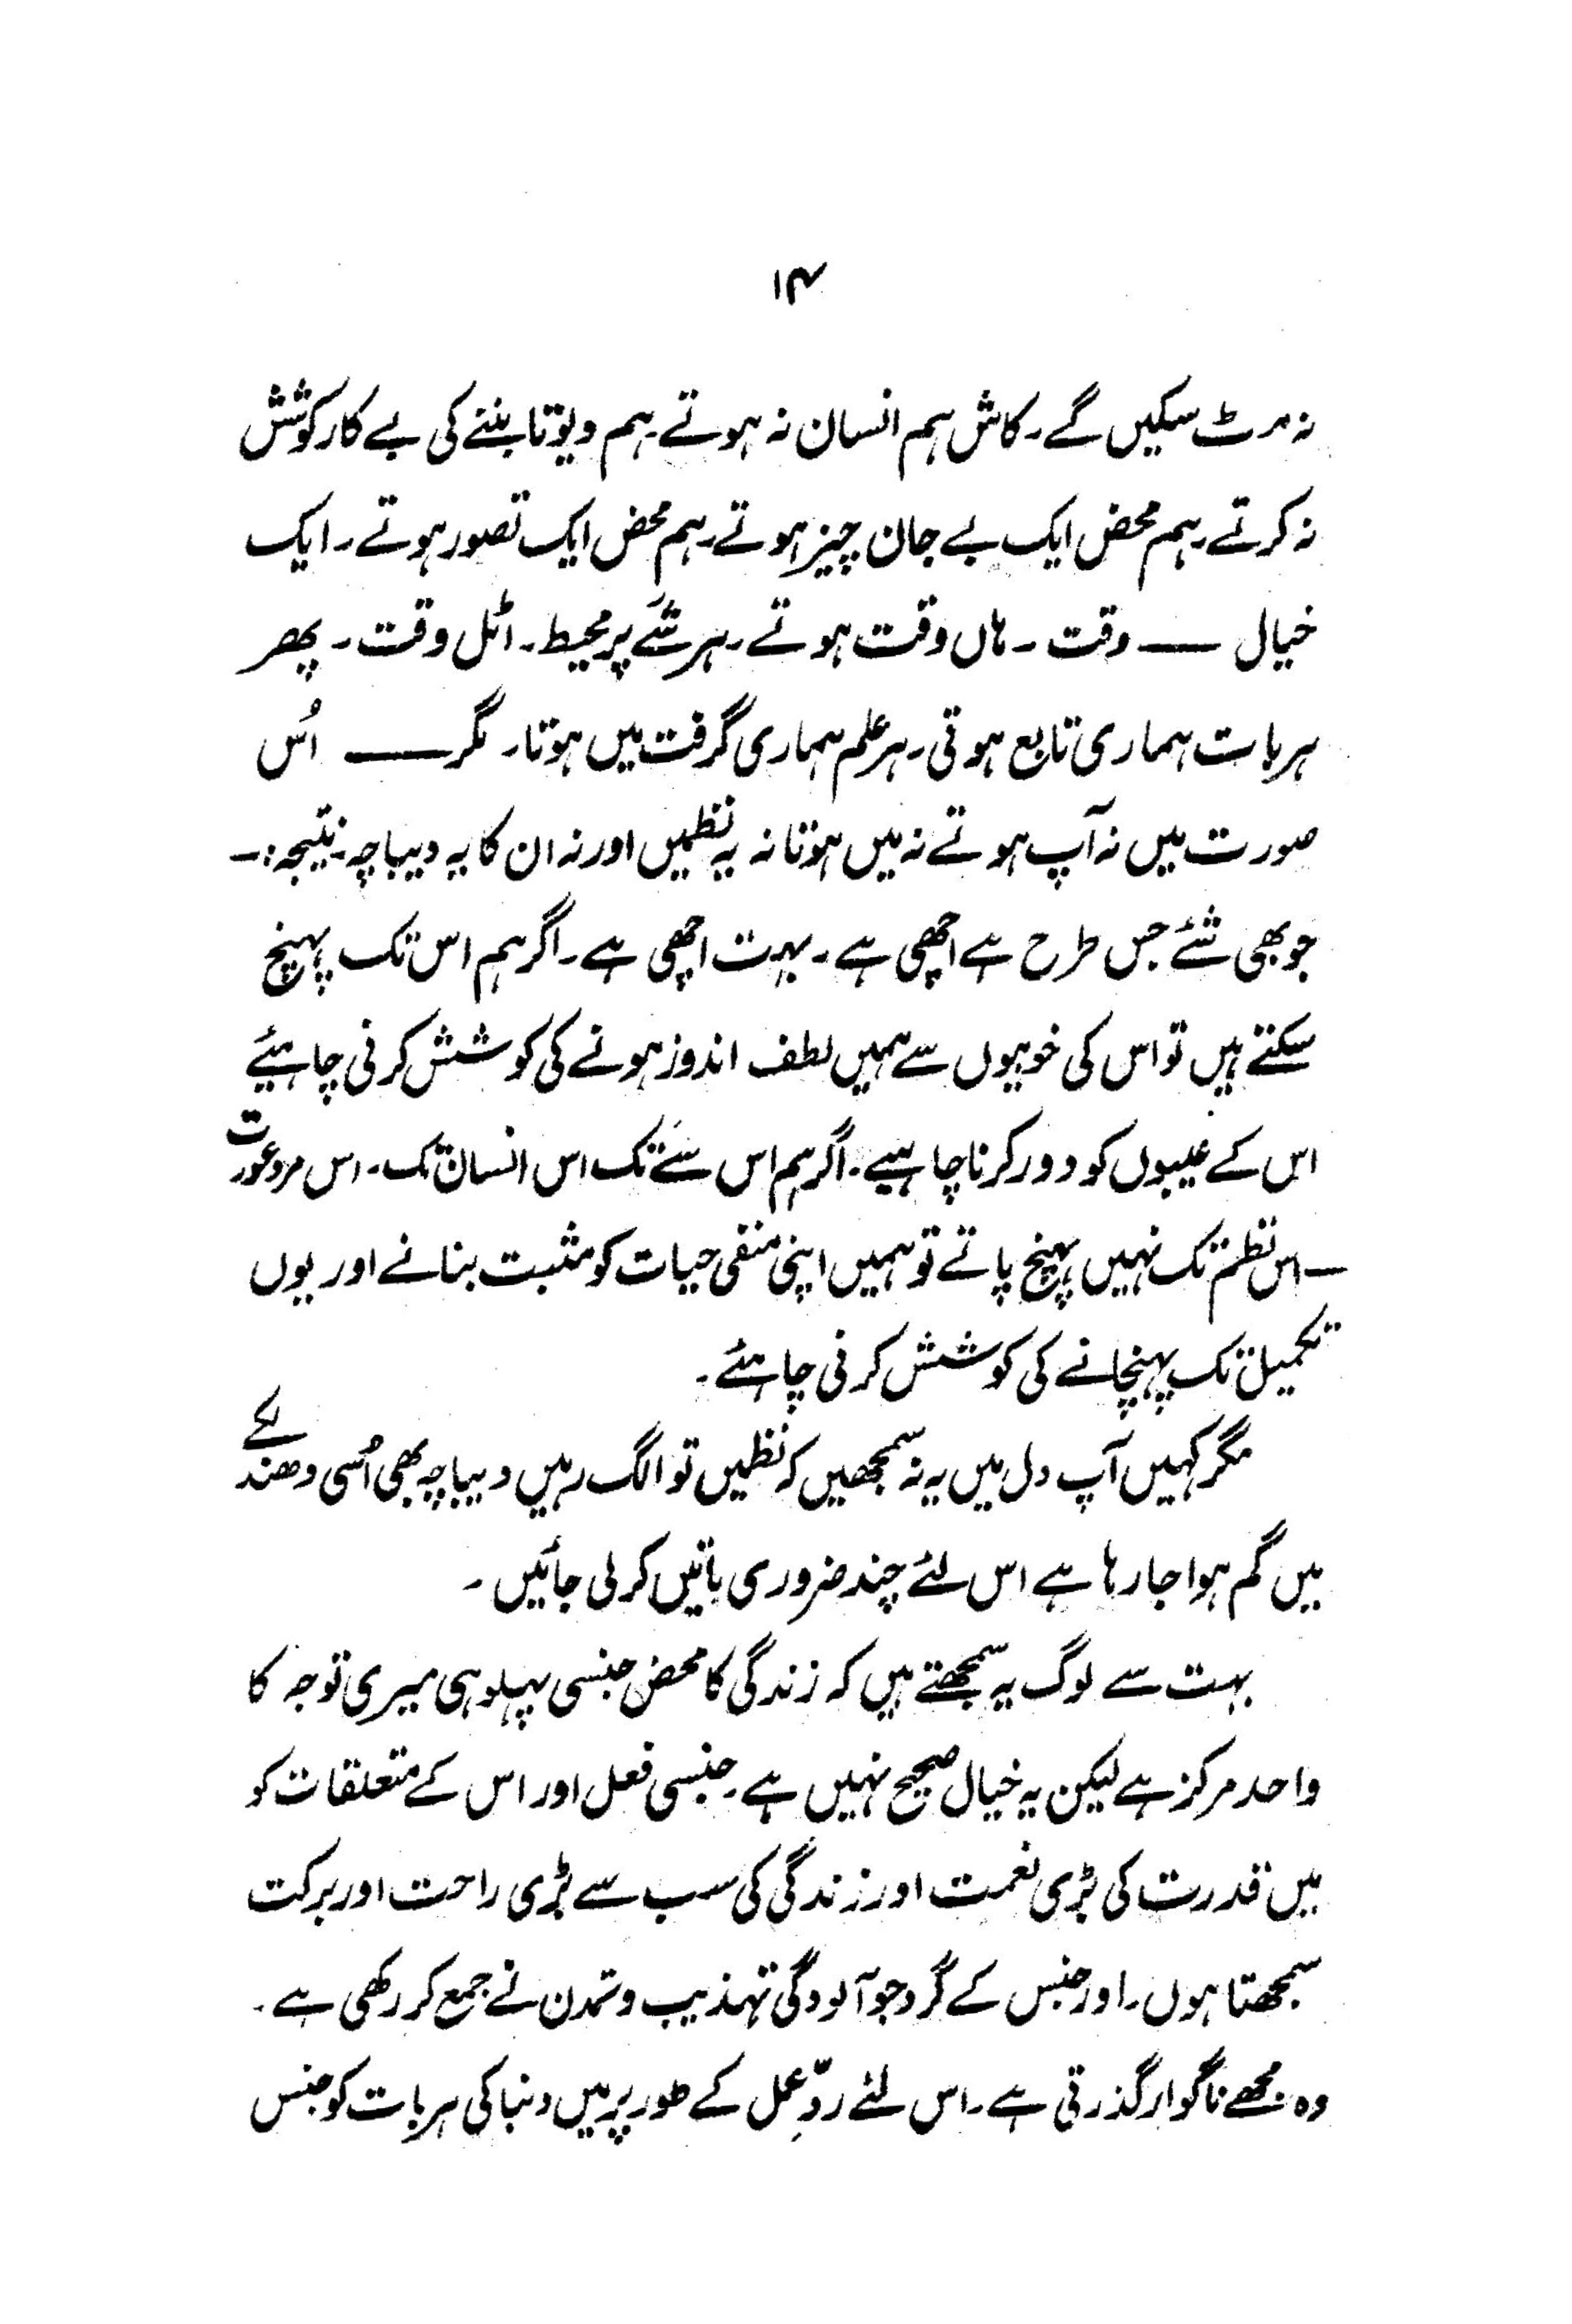 ۱۴
نہ مٹ سکیں گے۔ کاش ہم انسان نہ ہوتے۔ ہم دیوتا بننے کی بے کار کوشش
نہ کرتے۔ ہم محض ایک بے جان چیز ہوتے۔ ہم محض ایک تصور ہوتے۔ ایک
خیال —— وقت۔ ہاں وقت ہوتے۔ ہر شَے پر محیط۔ اٹل وقت۔ پھر
ہر بات ہماری تابع ہوتی۔ ہر علم ہماری گرفت میں ہوتا۔ مگر —— اُس
صورت میں نہ آپ ہوتے نہ میں ہوتا نہ یہ نظمیں اور نہ ان کا یہ دیباچہ۔ نتیجہ:۔
جو بھی شئے جس طرح ہے اچھی ہے۔ بہت اچھی ہے۔ اگر ہم اس تک پہنچ
سکتے ہیں تو اس کی خوبیوں سے ہمیں لطف اندوز ہونے کی کوشش کرنی چاہیئے
اس کے عیبوں کو دور کرنا چاہیے۔ اگر ہم اس شَے تک اس انسان تک۔ اس مرد عورت
— اس نظم تک نہیں پہنچ پاتے تو ہمیں اپنی منفی حیات کو مثبت بنانے اور یوں
تکمیل تک پہنچانے کی کوشش کرنی چاہئے۔
مگر کہیں آپ دل میں یہ نہ سمجھیں کہ نظمیں تو الگ رہیں دیباچہ بھی اُسی دھندلکے
میں گم ہوا جا رہا ہے اس لئے چند ضروری باتیں کر لی جائیں۔
بہت سے لوگ یہ سمجھتے ہیں کہ زندگی کا محض جنسی پہلو ہی میری توجہ کا
واحد مرکز ہے لیکن یہ خیال صحیح نہیں ہے۔ جنسی فعل اور اس کے متعلقات کو
میں قدرت کی بڑی نعمت اور زندگی کی سب سے بڑی راحت اور برکت
سمجھتا ہوں۔ اور جنس کے گرد جو آلودگی تہذیب و تمدن نے جمع کر رکھی ہے۔
وہ مجھے ناگوار گذرتی ہے۔ اس لئے ردِّ عمل کے طور پر میں دنیا کی ہر بات کو جنس